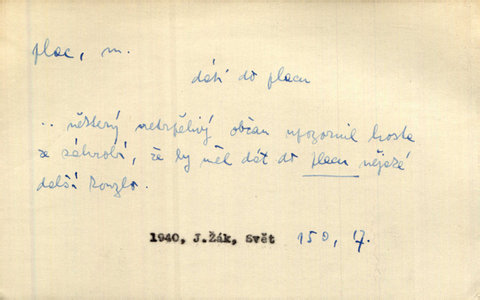 plac, m.
dáti do placu
.. některý netrpělivý občan upozornil hosta
ze záhrobí, že by měl dát do placu nějaké
další kouzlo.
1940, J.Žák, Svět 150, 17.